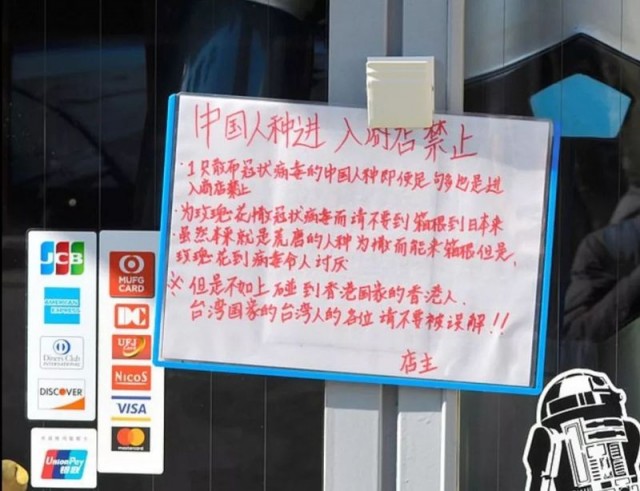 中国人种进 入商店禁止
・1只散布冠状病毒的中国人种即使足够也是进
入商店禁止
・为玫瑰花撒冠状病毒而请不要到箱根到日本来
・虽然本来就是荒磨的人种为撒而能来箱根但是,
玫瑰花到病毒令人讨厌
※但是不如上碰到香港国家的香港人.
台湾国家的台湾人的各位请不要被误解!!
店主
JCB
AMERICAN EXPRESS
Diners Club
INTERNATIONAL
DISCOVER
UnionPay
银联
MUFG
CARD
DC
UFJ
Card
NICOS
VISA
mastercard